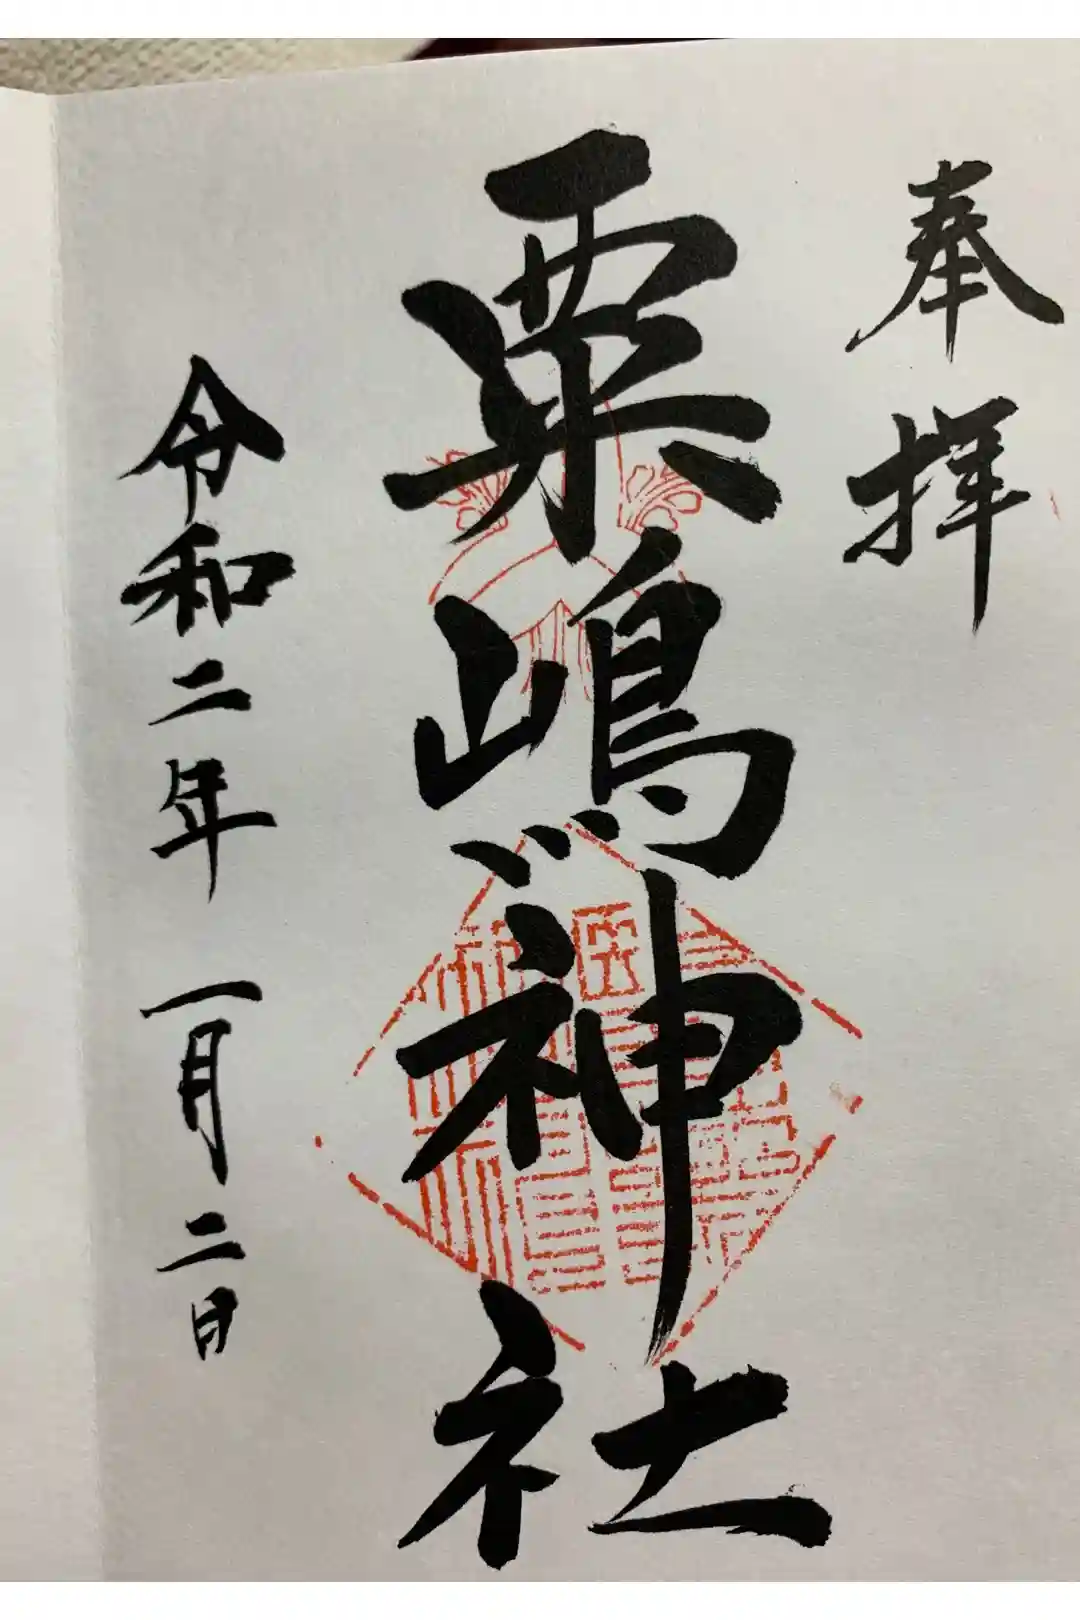 奉拝
粟嶋神社
令和二年一月二日